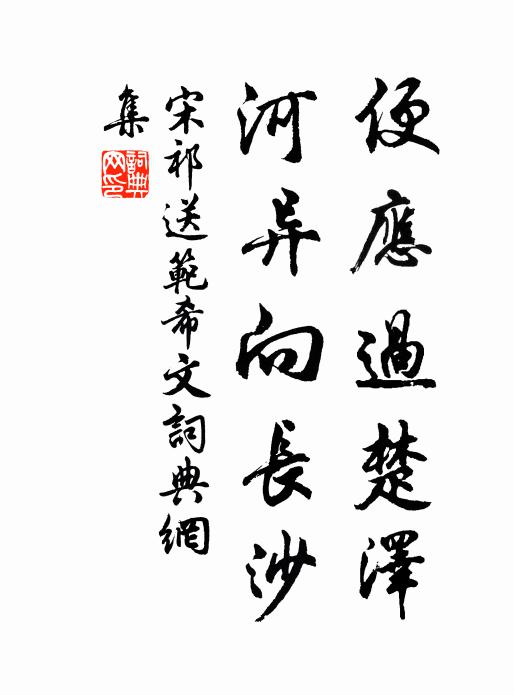 便應過楚澤
河异向長沙
宋祁送範希文詞典網
集
詞典網印